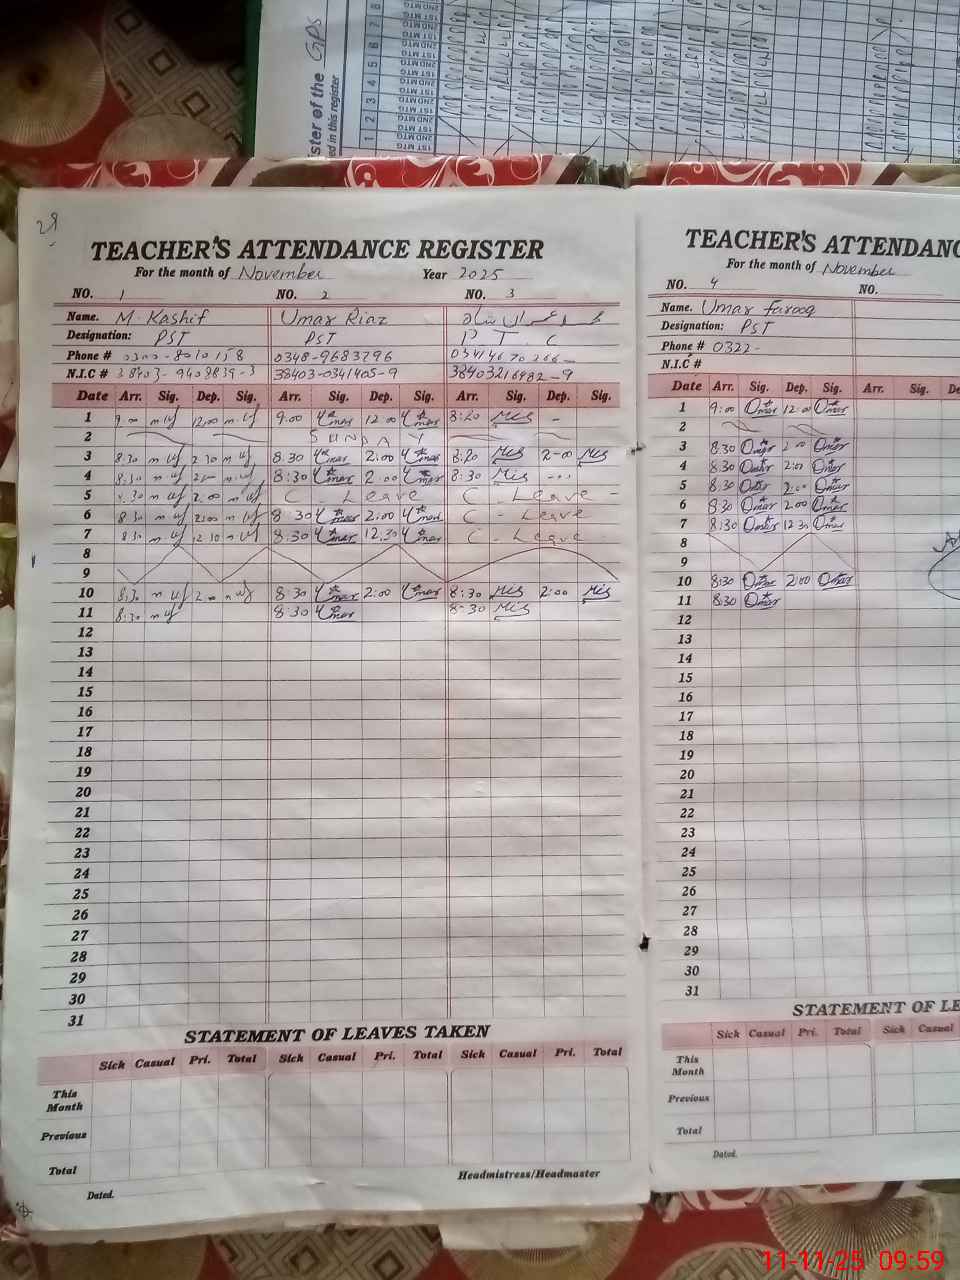 ster of the GPS
ed in this register
1 2 3 4 5 6 7 8
1ST MTG 2ND MTG 1ST MTG 2ND MTG 1ST MTG 2ND MTG
TEACHER'S ATTENDANCE REGISTER
For the month of November Year 2025
NO. 1 NO. 2 NO. 3
Name. M. Kashif Umar Riaz
Designation: PST PST P T C
Phone # 0348-9683796
N.I.C # 38403-0341405-9
Date Arr. Sig. Dep. Sig. Arr. Sig. Dep. Sig. Arr. Sig. Dep. Sig.
1 9:00 12:00 9.00 12:00 8:20 -
2 SUNDAY
3 8:30 2:30 8.30 2:00 8:20 2-00
4 8:30 2:00 8:30 2:00 8:30 ---
5 8:30 2:00 C. Leave C. Leave -
6 8:30 2:00 8:30 2:00 C - Leave
7 8:30 12:30 8:30 12.30 C - Leave
8
9
10 8:30 2:00 8:30 2:00 8:30 2:00
11 8:30 8:30 8:30
12
13
14
15
16
17
18
19
20
21
22
23
24
25
26
27
28
29
30
31
STATEMENT OF LEAVES TAKEN
Sick Casual Pri. Total Sick Casual Pri. Total Sick Casual Pri. Total
This Month
Previous
Total
Headmistress/Headmaster
Dated.
TEACHER'S ATTENDANC
For the month of November
NO. 4 NO.
Name. Umar Farooq
Designation: PST
Phone # 0322-
N.I.C #
Date Arr. Sig. Dep. Sig. Arr. Sig. De
1 9:00 12:00
2
3 8:30 2:00
4 8:30 2:00
5 8:30 2:00
6 8:30 2:00
7 8:30 12:30
8
9
10 8:30 2:00
11 8:30
12
13
14
15
16
17
18
19
20
21
22
23
24
25
26
27
28
29
30
31
STATEMENT OF LE
Sick Casual Pri. Total Sick Casual
This Month
Previous
Total
Dated.
11-11-25 09:59